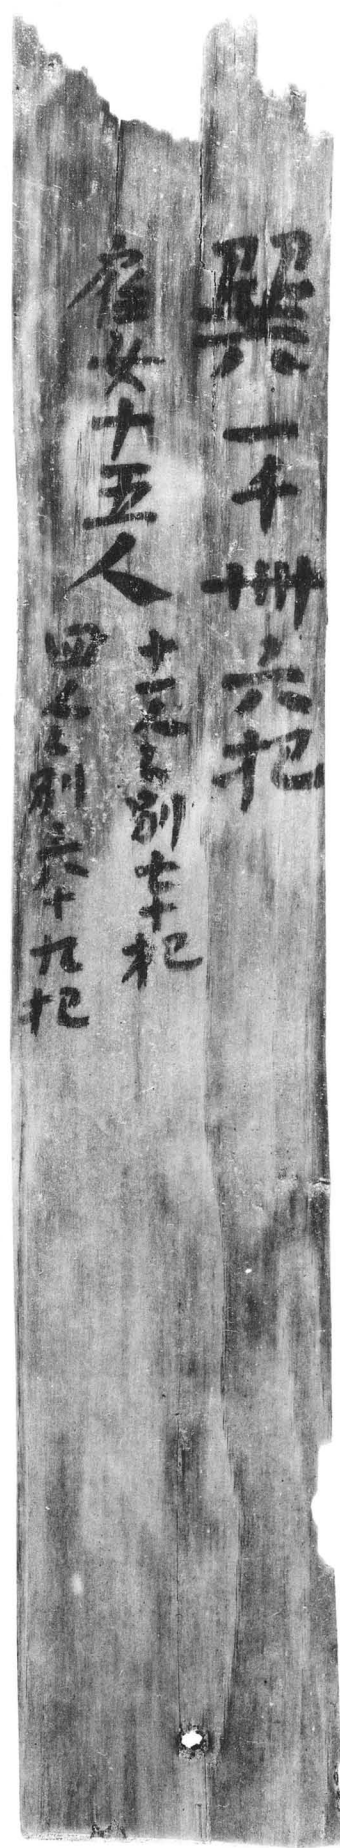 巽一千卌六把
雇女十五人
十一人々別七十把
四人々別六十九把